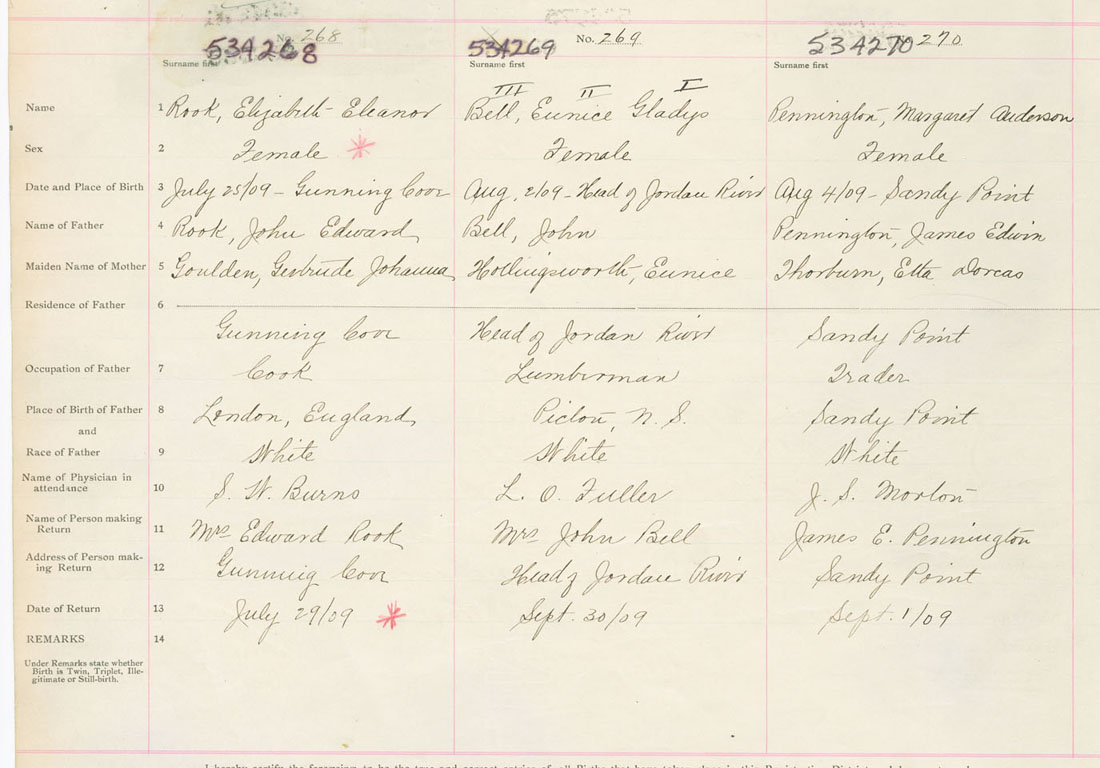 No. 268 No. 269 No. 270
534268 534269 534270
Surname first Surname first Surname first
III II I
Name 1 Rook, Elizabeth Eleanor Bell, Eunice Gladys Pennington, Margaret Anderson
Sex 2 Female * Female Female
Date and Place of Birth 3 July 25/09 - Gunning Cove Aug. 2/09 - Head of Jordan River Aug 4/09 - Sandy Point
Name of Father 4 Rook, John Edward Bell, John Pennington, James Edwin
Maiden Name of Mother 5 Goulden, Gertrude Johanna Hollingsworth, Eunice Thorburn, Etta Dorcas
Residence of Father 6
Gunning Cove Head of Jordan River Sandy Point
Occupation of Father 7 Cook Lumberman Trader
Place of Birth of Father 8 London, England Pictou, N. S. Sandy Point
and
Race of Father 9 White White White
Name of Physician in
attendance 10 S. W. Burns L. O. Fuller J. S. Morton
Name of Person making
Return 11 Mrs Edward Rook Mrs John Bell James E. Pennington
Address of Person mak-
ing Return 12 Gunning Cove Head of Jordan River Sandy Point
Date of Return 13 July 29/09 * Sept. 30/09 Sept. 1/09
REMARKS 14
Under Remarks state whether
Birth is Twin, Triplet, Ille-
gitimate or Still-birth.